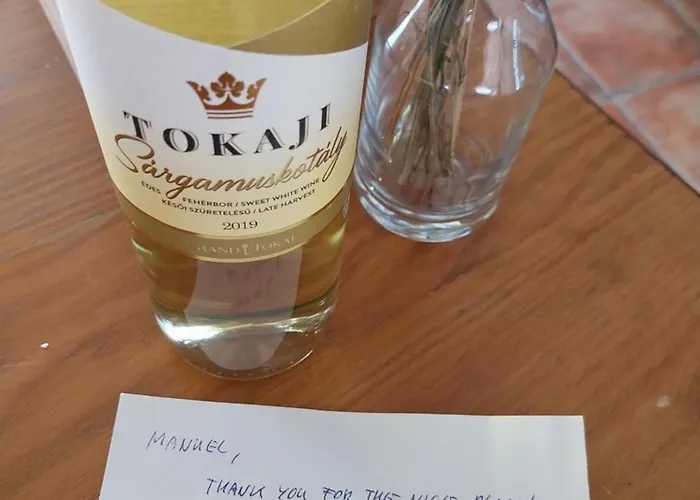 TOKAJI
Sárgamuskotály
ÉDES FEHÉRBOR / SWEET WHITE WINE
KÉSŐI SZÜRETELÉSŰ / LATE HARVEST
2019
GRAND TOKAJ
MANUEL,
THANK YOU FOR THE NICE